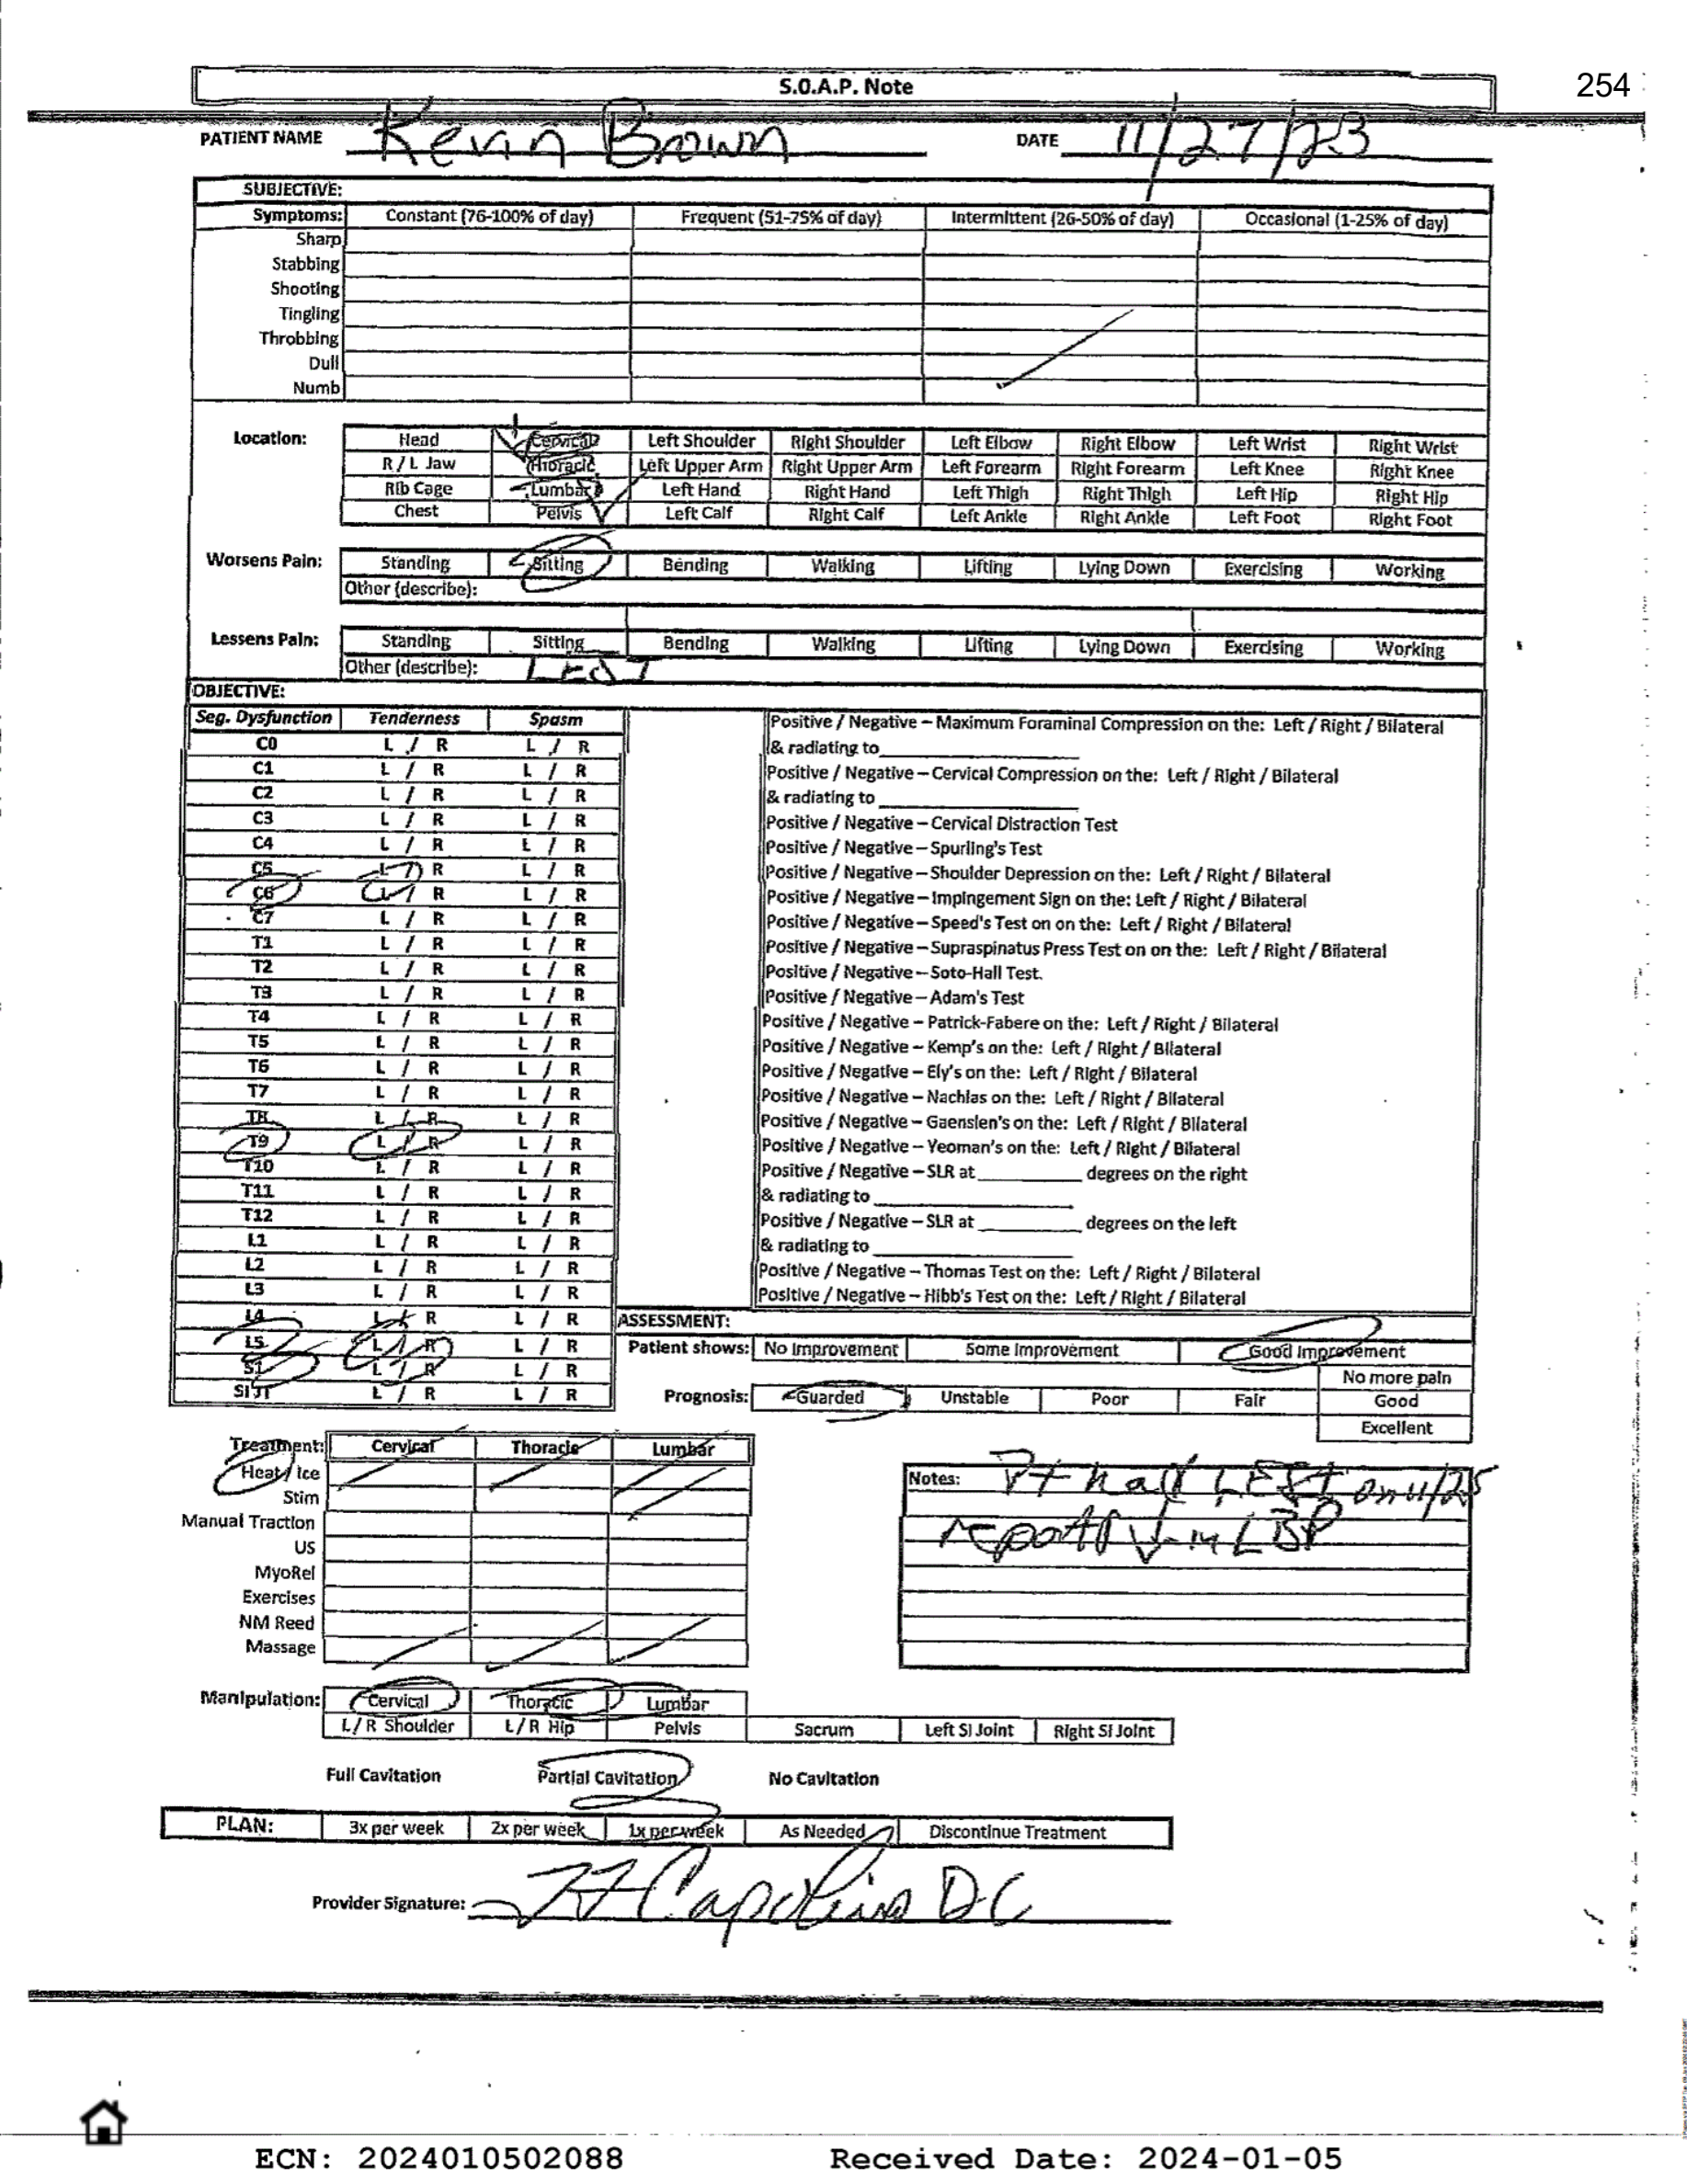 S.O.A.P. Note
254
PATIENT NAME Kevin Brown DATE 11/27/23
SUBJECTIVE:
Symptoms: Constant (76-100% of day) Frequent (51-75% of day) Intermittent (26-50% of day) Occasional (1-25% of day)
Sharp
Stabbing
Shooting
Tingling
Throbbing
Dull
Numb
Location: Head Cervical Left Shoulder Right Shoulder Left Elbow Right Elbow Left Wrist Right Wrist
R / L Jaw Thoracic Left Upper Arm Right Upper Arm Left Forearm Right Forearm Left Knee Right Knee
Rib Cage Lumbar Left Hand Right Hand Left Thigh Right Thigh Left Hip Right Hip
Chest Pelvis Left Calf Right Calf Left Ankle Right Ankle Left Foot Right Foot
Worsens Pain: Standing Sitting Bending Walking Lifting Lying Down Exercising Working
Other (describe):
Lessens Pain: Standing Sitting Bending Walking Lifting Lying Down Exercising Working
Other (describe):
OBJECTIVE:
Seg. Dysfunction Tenderness Spasm Positive / Negative – Maximum Foraminal Compression on the: Left / Right / Bilateral
C0 L / R L / R & radiating to
C1 L / R L / R Positive / Negative – Cervical Compression on the: Left / Right / Bilateral
C2 L / R L / R & radiating to
C3 L / R L / R Positive / Negative – Cervical Distraction Test
C4 L / R L / R Positive / Negative – Spurling's Test
C5 L / R L / R Positive / Negative – Shoulder Depression on the: Left / Right / Bilateral
C6 L / R L / R Positive / Negative – Impingement Sign on the: Left / Right / Bilateral
C7 L / R L / R Positive / Negative – Speed's Test on on the: Left / Right / Bilateral
T1 L / R L / R Positive / Negative – Supraspinatus Press Test on on the: Left / Right / Bilateral
T2 L / R L / R Positive / Negative – Soto-Hall Test.
T3 L / R L / R Positive / Negative – Adam's Test
T4 L / R L / R Positive / Negative – Patrick-Fabere on the: Left / Right / Bilateral
T5 L / R L / R Positive / Negative – Kemp's on the: Left / Right / Bilateral
T6 L / R L / R Positive / Negative – Ely's on the: Left / Right / Bilateral
T7 L / R L / R Positive / Negative – Nachlas on the: Left / Right / Bilateral
T8 L / R L / R Positive / Negative – Gaenslen's on the: Left / Right / Bilateral
T9 L / R L / R Positive / Negative – Yeoman's on the: Left / Right / Bilateral
T10 L / R L / R Positive / Negative – SLR at degrees on the right
T11 L / R L / R & radiating to
T12 L / R L / R Positive / Negative – SLR at degrees on the left
L1 L / R L / R & radiating to
L2 L / R L / R Positive / Negative – Thomas Test on the: Left / Right / Bilateral
L3 L / R L / R Positive / Negative – Hibb's Test on the: Left / Right / Bilateral
L4 L / R L / R ASSESSMENT:
L5 L / R L / R Patient shows: No Improvement Some Improvement Good Improvement
S1 L / R L / R No more pain
SI JT L / R L / R Prognosis: Guarded Unstable Poor Fair Good
Excellent
Treatment: Cervical Thoracic Lumbar
Heat / Ice
Stim
Manual Traction
US
MyoRel
Exercises
NM Reed
Massage
Notes: Pt had LESI on 11/25
reports ↓ in LBP
Manipulation: Cervical Thoracic Lumbar
L / R Shoulder L / R Hip Pelvis Sacrum Left SI Joint Right SI Joint
Full Cavitation Partial Cavitation No Cavitation
PLAN: 3x per week 2x per week 1x per week As Needed Discontinue Treatment
Provider Signature: DC
ECN: 2024010502088 Received Date: 2024-01-05